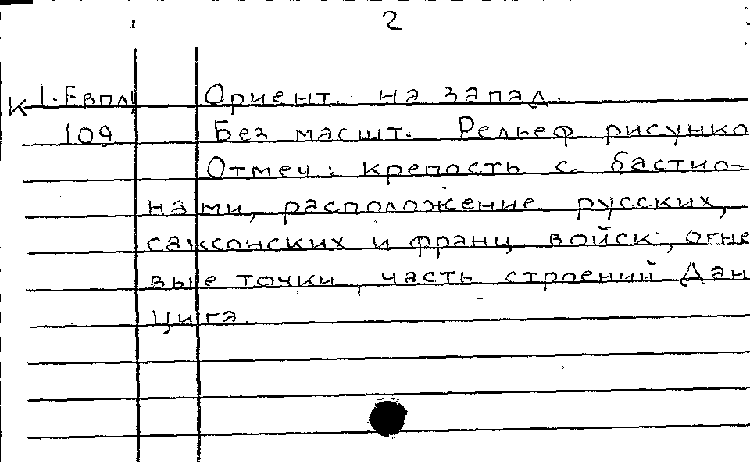 2
К 1-Евпл Ориент. на запад.
109 Без масшт. Рельеф рисунко
Отмеч.: крепость с басти-
нами, расположение русских,
саксонских и франц. войск, огне
вые точки, часть строений Дан
цига.